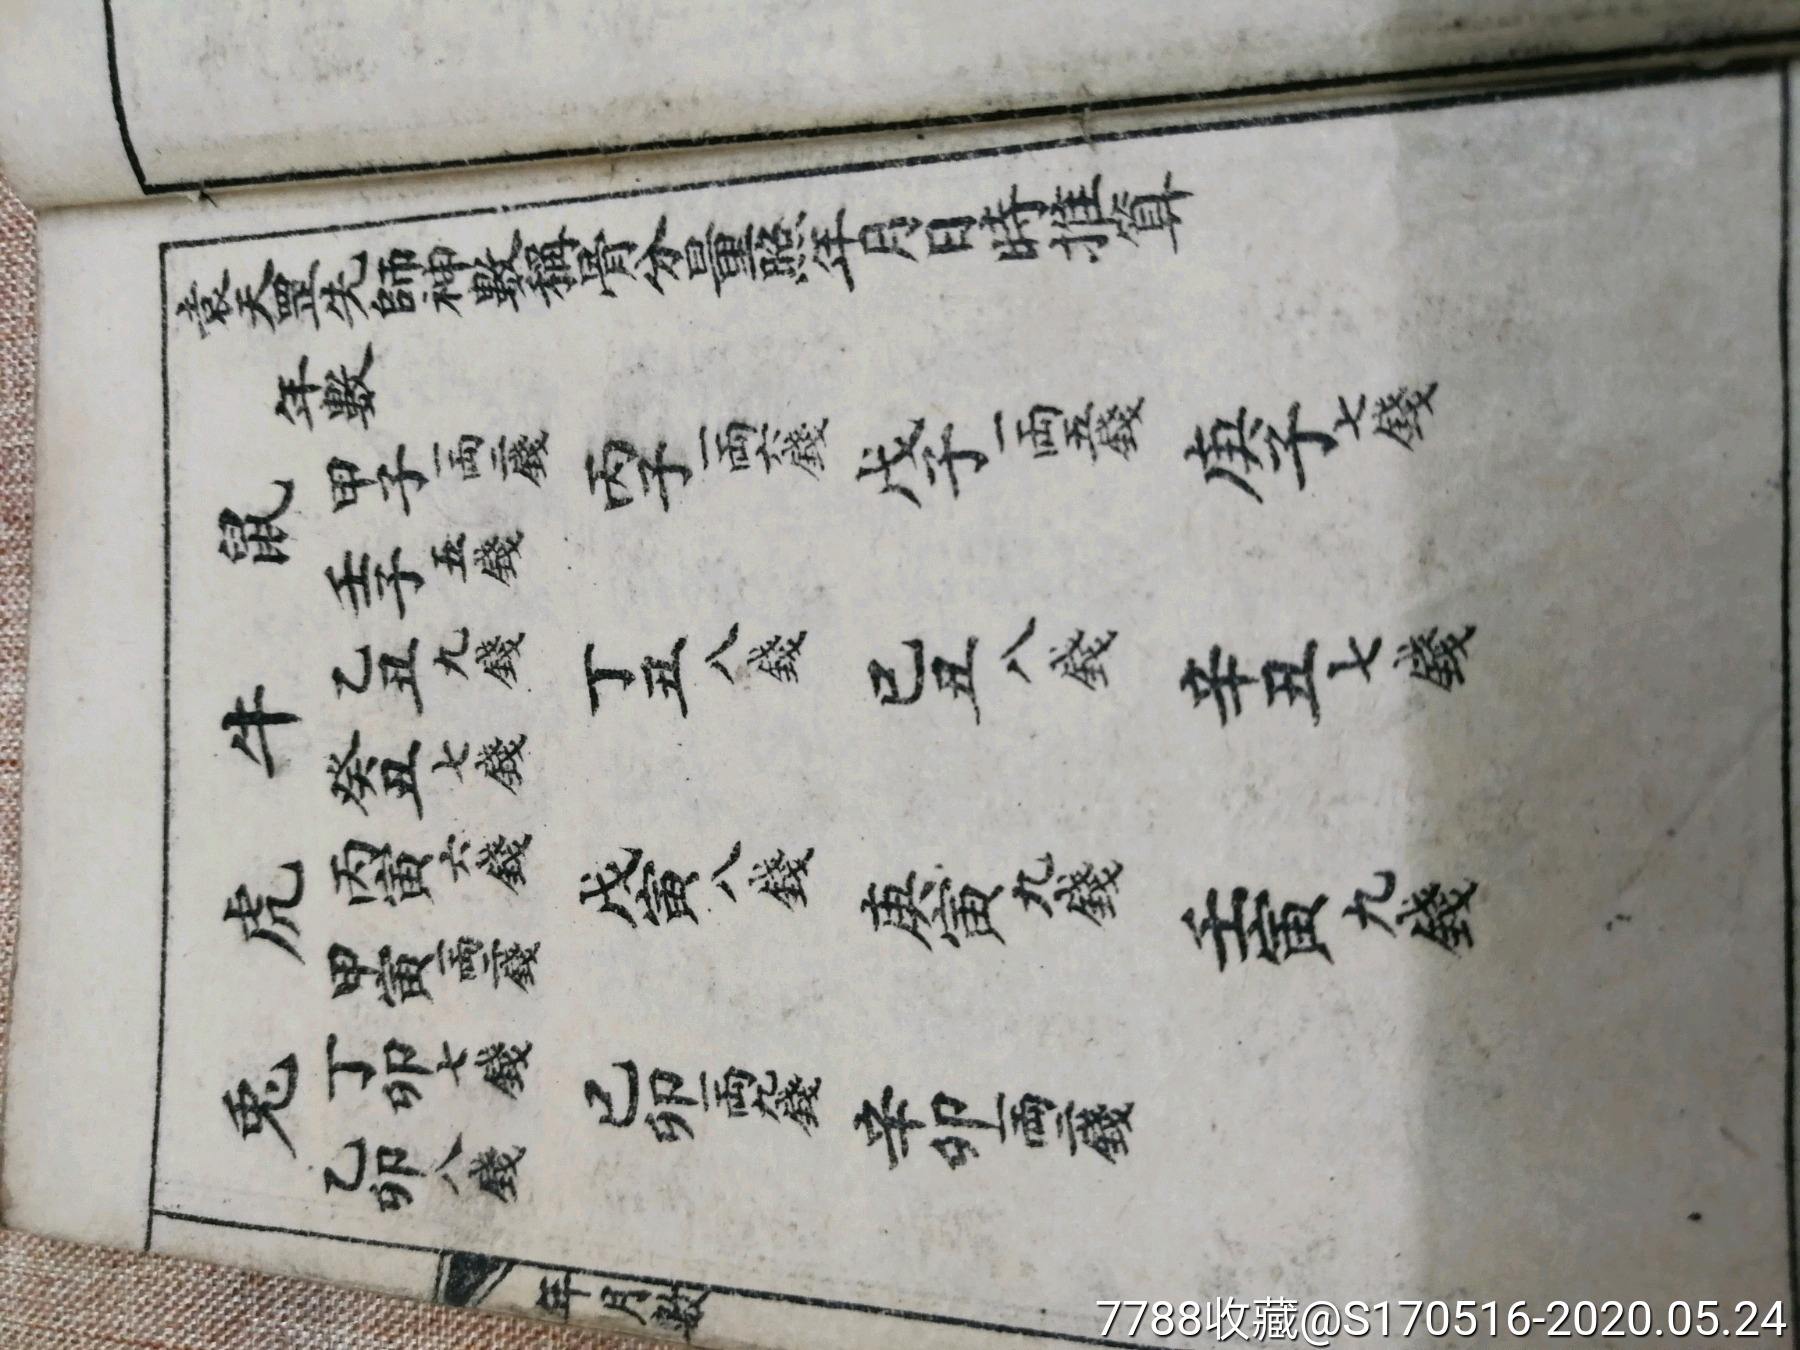 袁天罡先師神數稱骨分量照年月日時推算
年數
鼠
甲子一兩二錢 丙子一兩六錢 戊子一兩五錢 庚子七錢
壬子五錢
牛
乙丑九錢 丁丑八錢 己丑八錢 辛丑七錢
癸丑七錢
虎
丙寅六錢 戊寅八錢 庚寅九錢 壬寅九錢
甲寅一兩二錢
兔
丁卯七錢 己卯一兩九錢 辛卯一兩二錢
乙卯八錢
年月數
7788收藏@S170516-2020.05.24